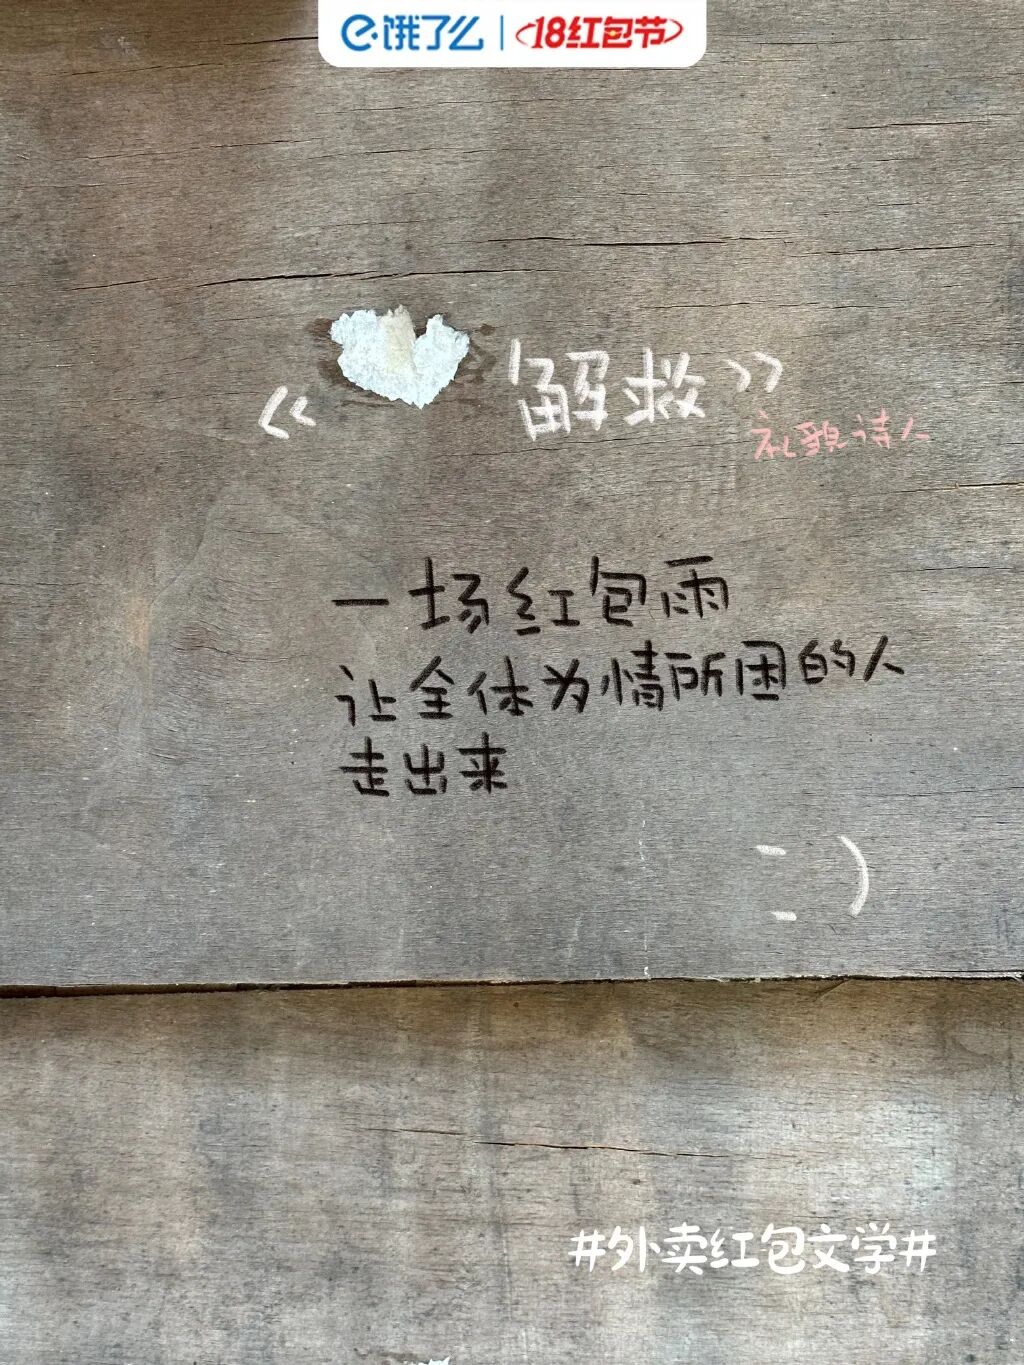 饿了么 | 18红包节
《解救》
礼貌诗人
一场红包雨
让全体为情所困的人
走出来
:)
#外卖红包文学#